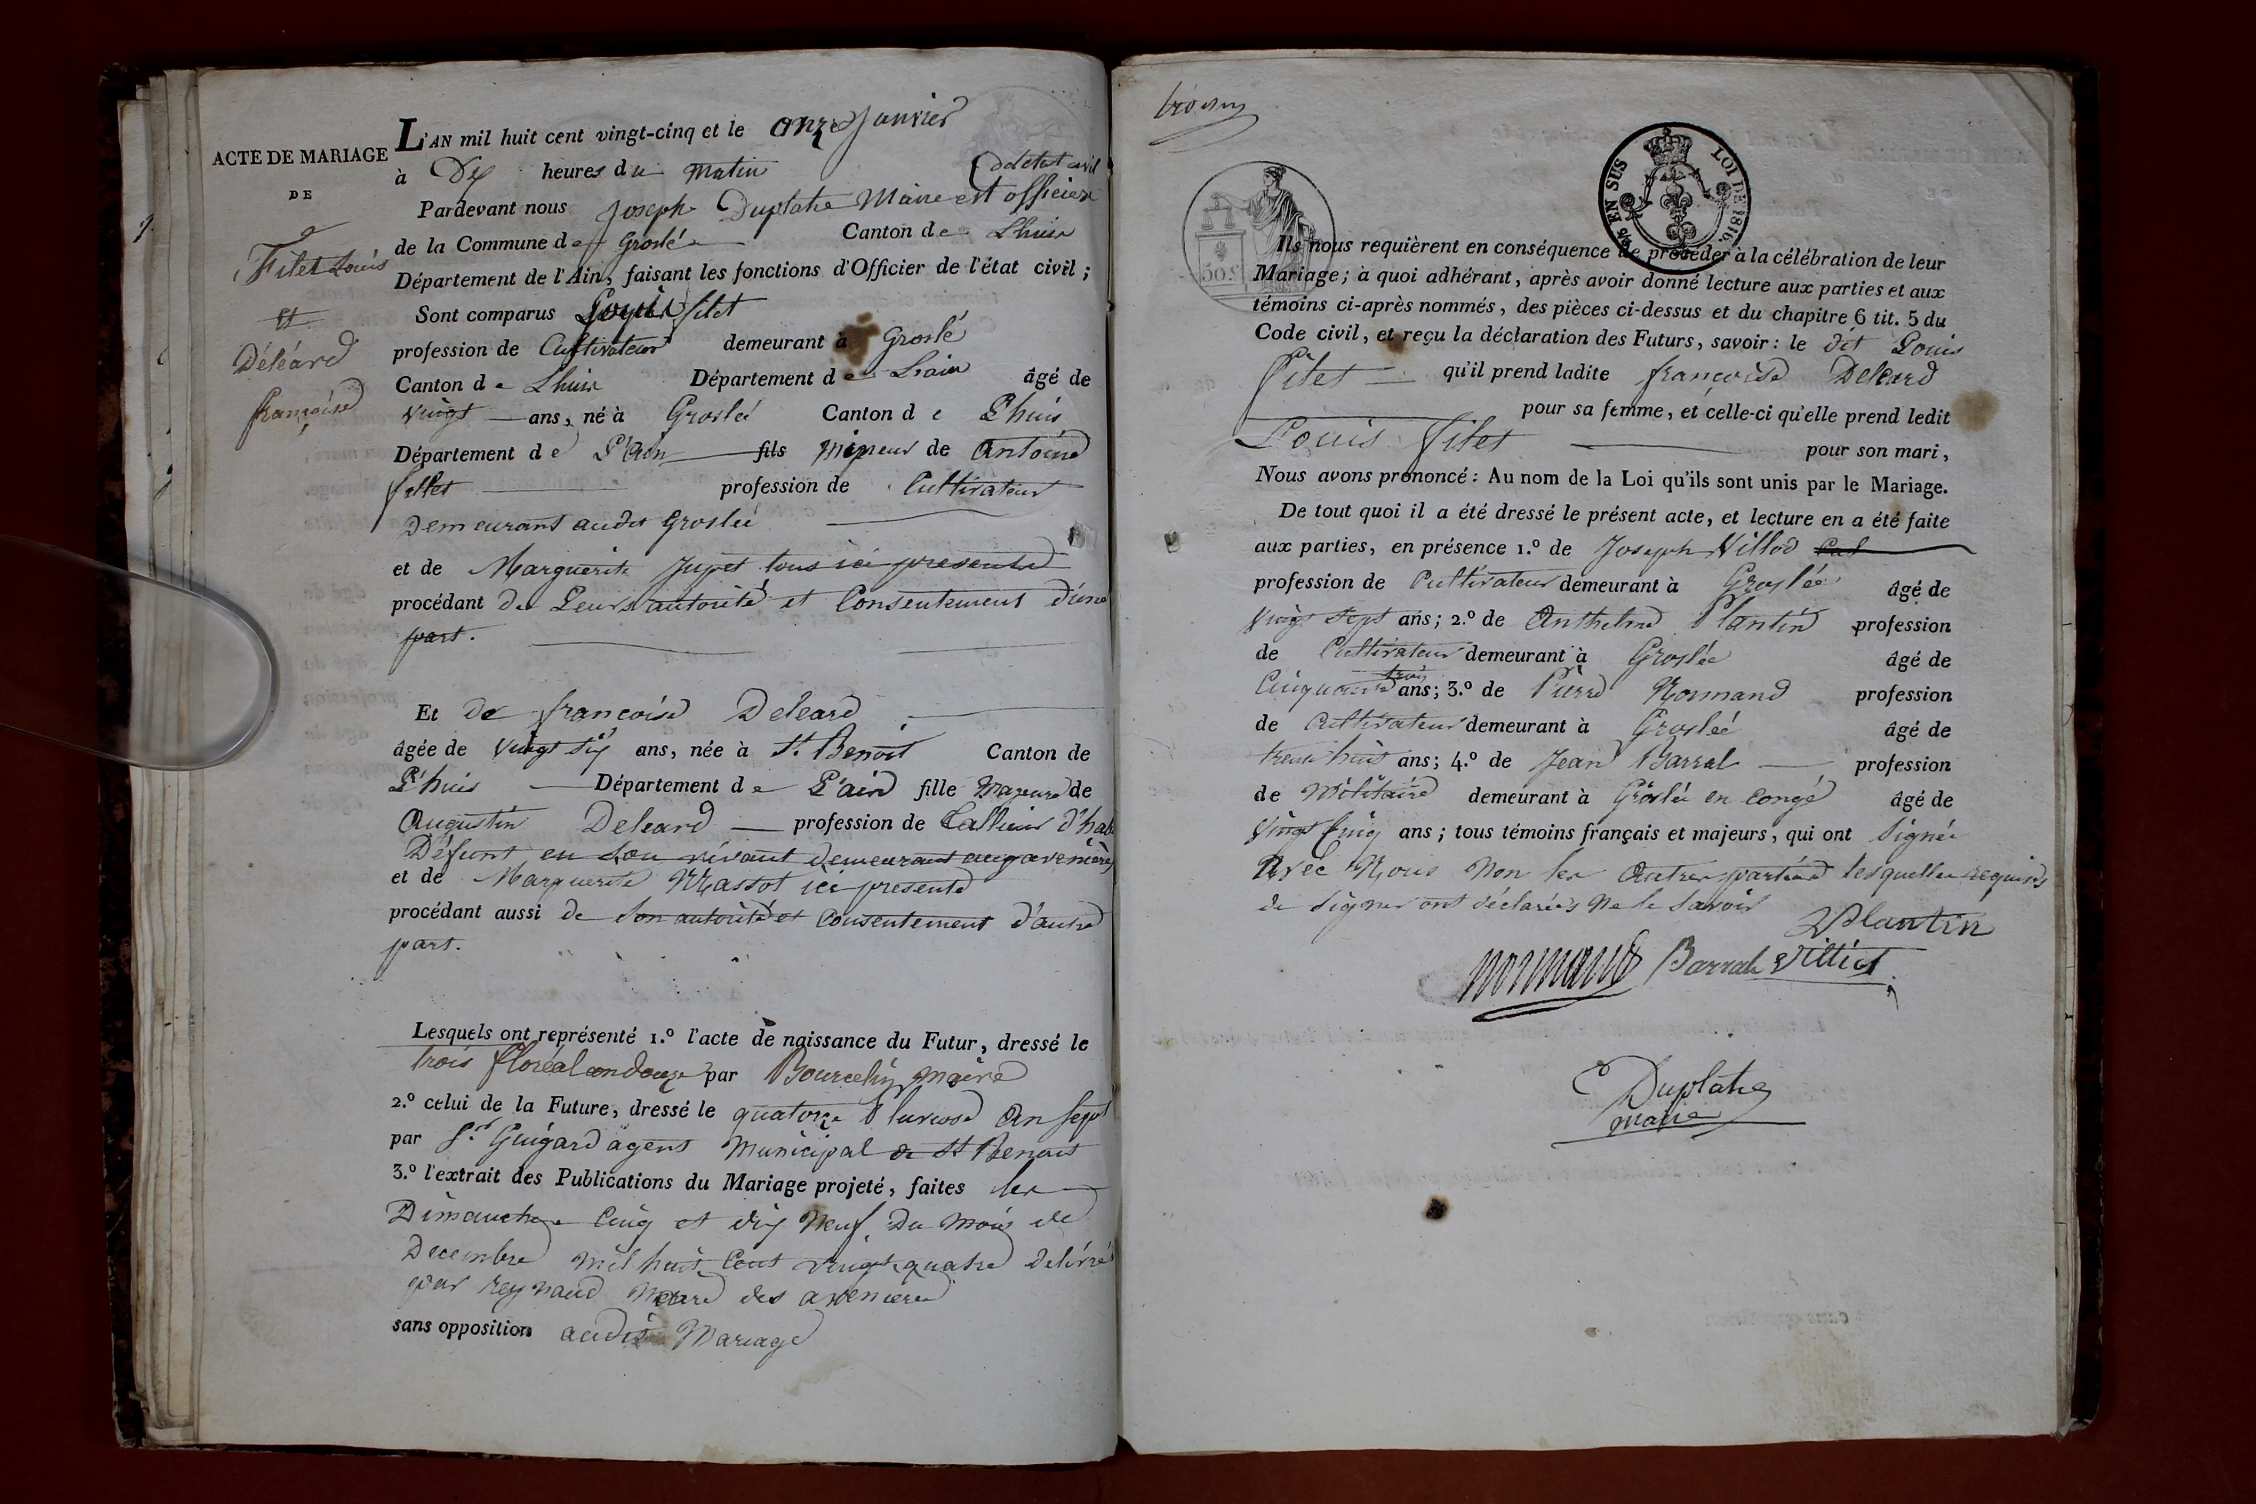 ACTE DE MARIAGE
DE
Filet Louis
et
Déléard
françoise
L'AN mil huit cent vingt-cinq et le onze Janvier
à Dix heures du matin
d'état civil
Pardevant nous Joseph Duplatre Maire est officier
de la Commune de Groslé Canton de Lhuis
Département de l'Ain, faisant les fonctions d'Officier de l'état civil ;
Sont comparus Louis filet
profession de Cultivateur demeurant à Groslé
Canton de Lhuis Département de Lain âgé de
vingt ans, né à Groslée Canton de L'huis
Département de L'ain fils mineur de Antoine
fillet profession de Cultivateur
Demeurant audit Groslée
et de Marguerite Jupet tous ici presented
procédant de Leurs autorité et Consentement d'une
part.
Et de françoise Deleard
âgée de vingt six ans, née à St. Benoit Canton de
L'huis Département de L'ain fille Majeure de
Augustin Deleard profession de tallieur d'hab
Défunt en son vivant demeurant aux avenieres
et de Marguerite Massot ici presente
procédant aussi de son autorité et consentement d'autre
part.
Lesquels ont représenté 1.º l'acte de naissance du Futur, dressé le
trois floréal an douze par Bourcelin maire
2.º celui de la Future, dressé le quatorze Pluviose an sept
par Sr. Guigard agent Municipal de St Benoit
3.º l'extrait des Publications du Mariage projeté, faites les
Dimanche Cinq et dix Neuf Du Mois de
Decembre mil huit Cent vingt quatre delivré
par reynaud Maire des avenieres
sans opposition audit Mariage
trois
EN SUS
LOI DE 1816.
50 c
Ils nous requièrent en conséquence de procéder à la célébration de leur
Mariage ; à quoi adhérant, après avoir donné lecture aux parties et aux
témoins ci-après nommés, des pièces ci-dessus et du chapitre 6 tit. 5 du
Code civil, et reçu la déclaration des Futurs, savoir : le dit Louis
Filet qu'il prend ladite françoise Deleard
pour sa femme, et celle-ci qu'elle prend ledit
Louis filet pour son mari,
Nous avons prononcé : Au nom de la Loi qu'ils sont unis par le Mariage.
De tout quoi il a été dressé le présent acte, et lecture en a été faite
aux parties, en présence 1.º de Joseph Villod
profession de Cultivateur demeurant à Groslée âgé de
vingt sept ans ; 2.º de Anthelme Plantin profession
de Cultivateur demeurant à Groslée âgé de
trois
Cinquante ans ; 3.º de Pierre Normand profession
de Cultivateur demeurant à Groslée âgé de
trente huit ans ; 4.º de Jean Barral profession
de Militaire demeurant à Groslée en Congé âgé de
vingt Cinq ans ; tous témoins français et majeurs, qui ont Signée
Avec Nous Non les Autres partied lesquelles requises
de signer ont déclarées Ne le Savoir
Plantin
normand Barral Villiot
Duplatre
maire